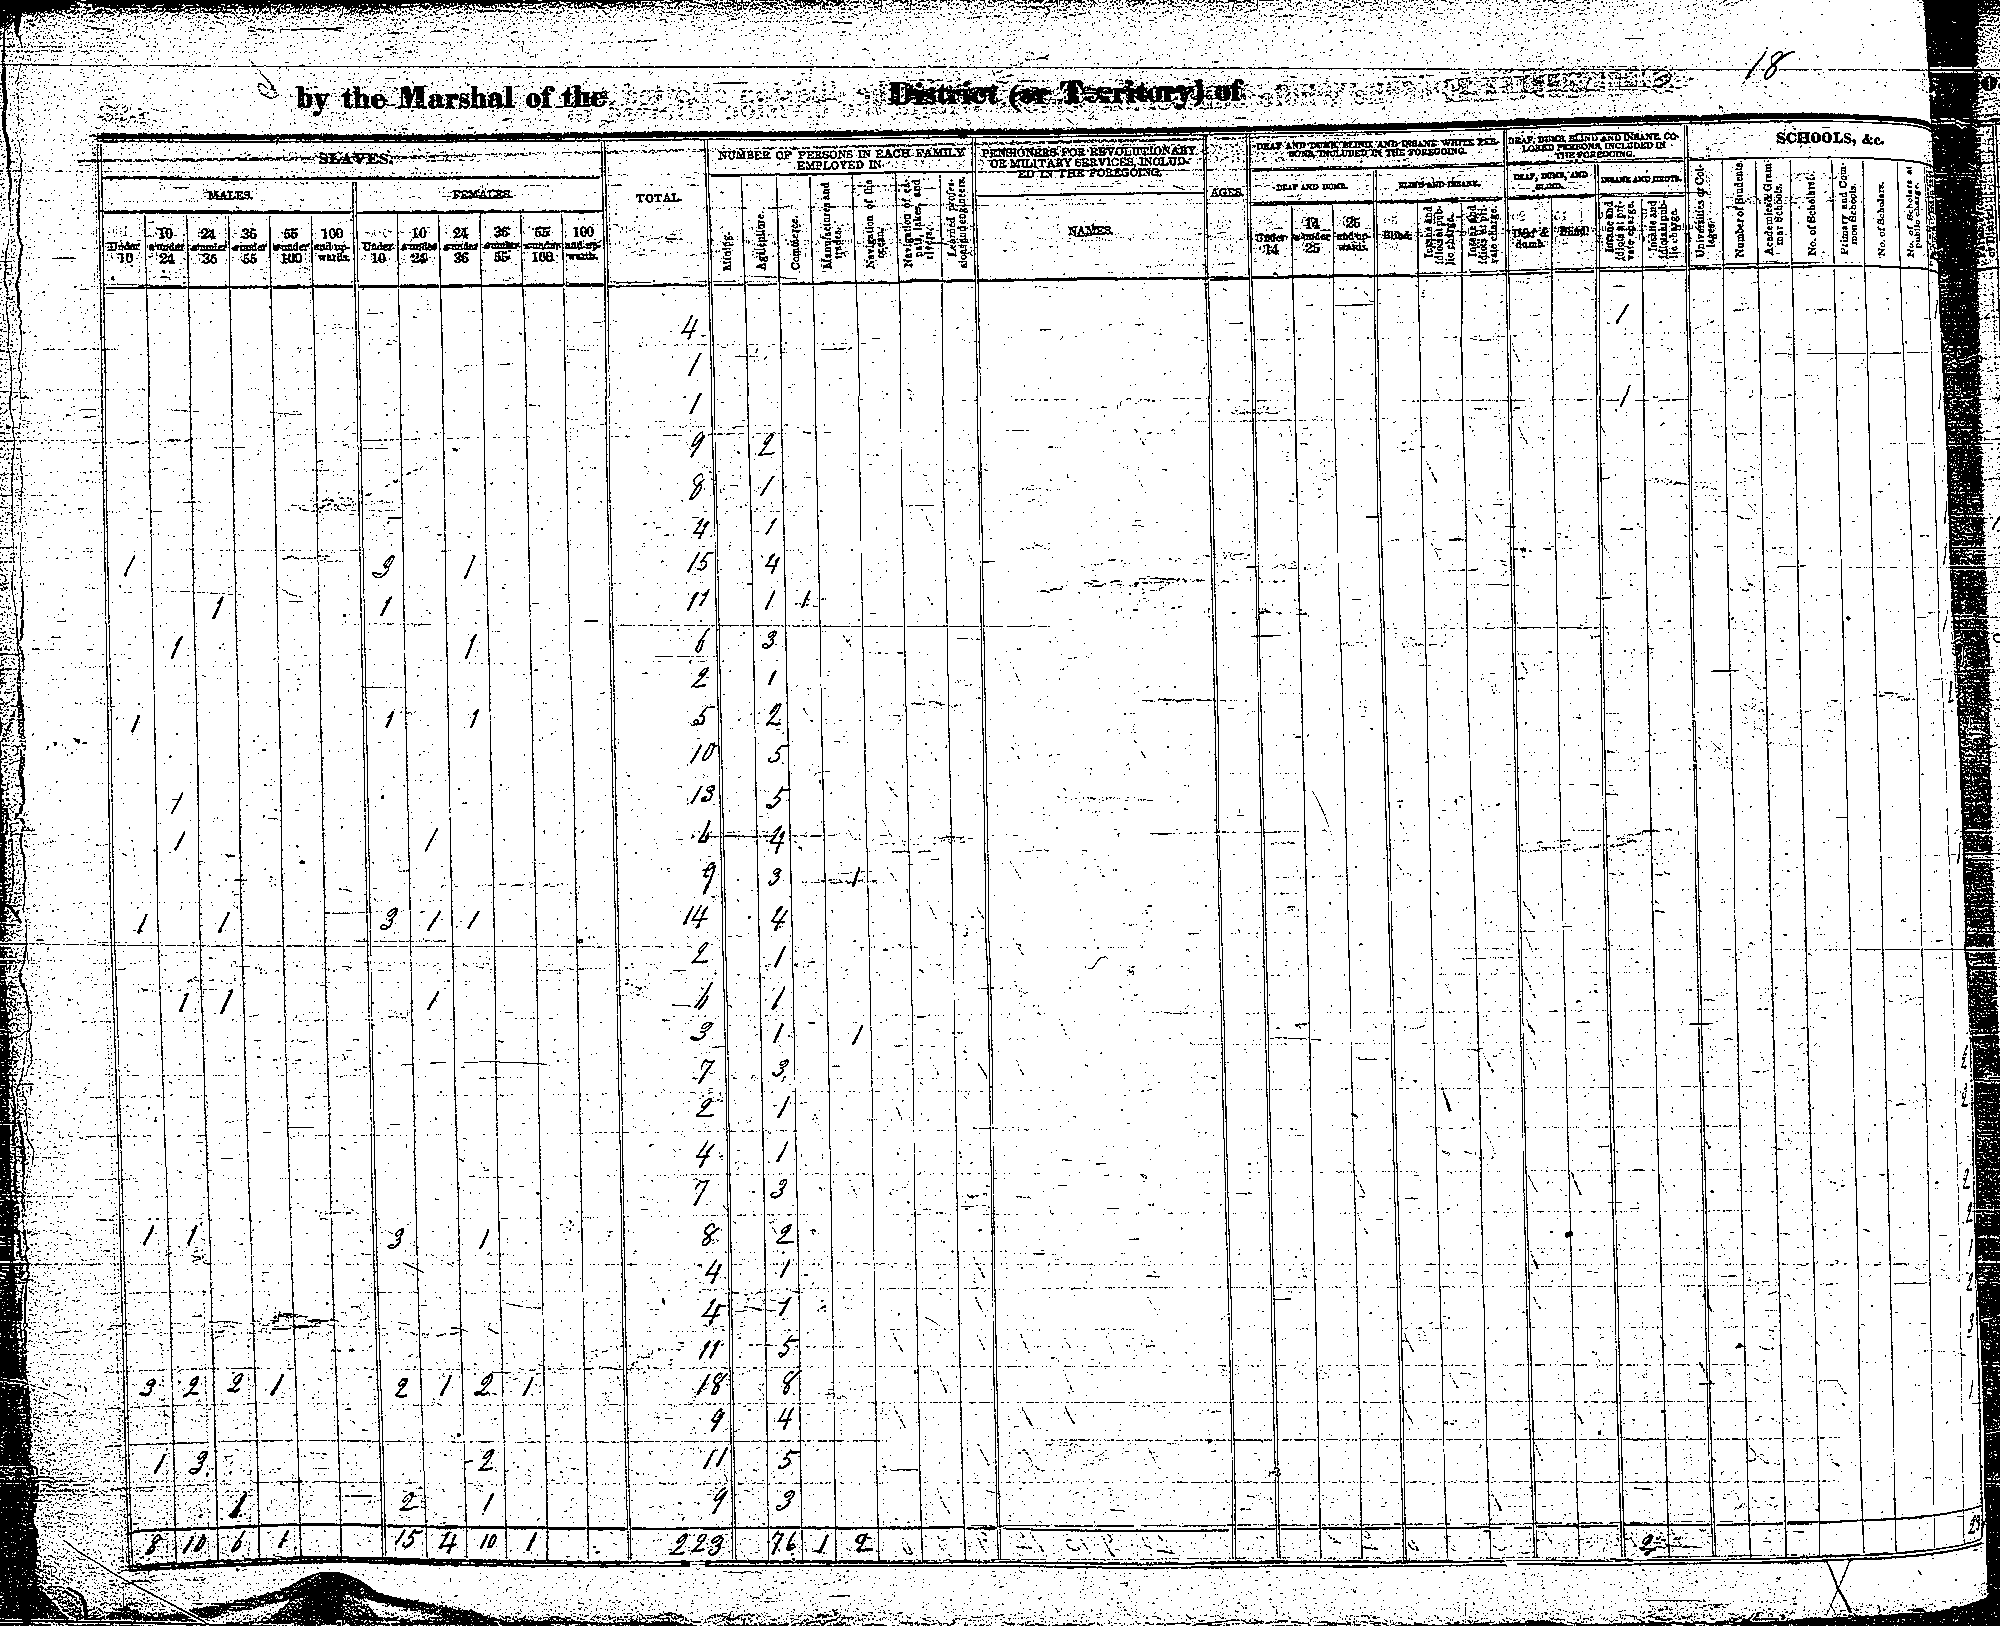 18
by the Marshal of the District (or Territory) of
SLAVES. TOTAL. NUMBER OF PERSONS IN EACH FAMILY EMPLOYED IN PENSIONERS FOR REVOLUTIONARY OR MILITARY SERVICES, INCLUDED IN THE FOREGOING. AGES. DEAF AND DUMB, BLIND AND INSANE WHITE PERSONS, INCLUDED IN THE FOREGOING. DEAF, DUMB, BLIND AND INSANE COLORED PERSONS, INCLUDED IN THE FOREGOING. SCHOOLS, &c.
MALES. FEMALES. NAMES. DEAF AND DUMB. BLIND AND INSANE. DEAF, DUMB, AND BLIND. INSANE AND IDIOTS.
Under 10 10 & under 24 24 & under 36 36 & under 55 55 & under 100 100 and upwards. Under 10 10 & under 24 24 & under 36 36 & under 55 55 & under 100 100 and upwards. Mining. Agriculture. Commerce. Manufactures and trades. Navigation of the ocean. Navigation of canals, lakes, and rivers. Learned professions and engineers. Under 14 14 & under 25 25 and upwards. Blind. Insane and idiots at public charge. Insane and idiots at private charge. Deaf & dumb. Blind. Insane and idiots at private charge. Insane and idiots at public charge. Universities or Colleges. Number of Students. Academies & Grammar Schools. No. of Scholars. Primary and Common Schools. No. of Scholars. No. of Scholars at public charge.
4 1
1
1 1
9 2
8 1
4 1
1 3 1 15 4
1 1 11 1 1
1 1 6 3
2 1
1 1 1 5 2
10 5
1 13 5
1 1 6 4
9 3 1
1 1 3 1 1 14 4
2 1
1 1 1 6 1
3 1 1
7 3
2 1
4 1
7 3
1 1 3 1 8 2
4 1
4 1
11 5
3 2 2 1 2 1 2 1 18 8
9 4
1 3 2 11 5
1 2 1 9 3
8 10 6 1 15 4 10 1 223 76 1 2 2